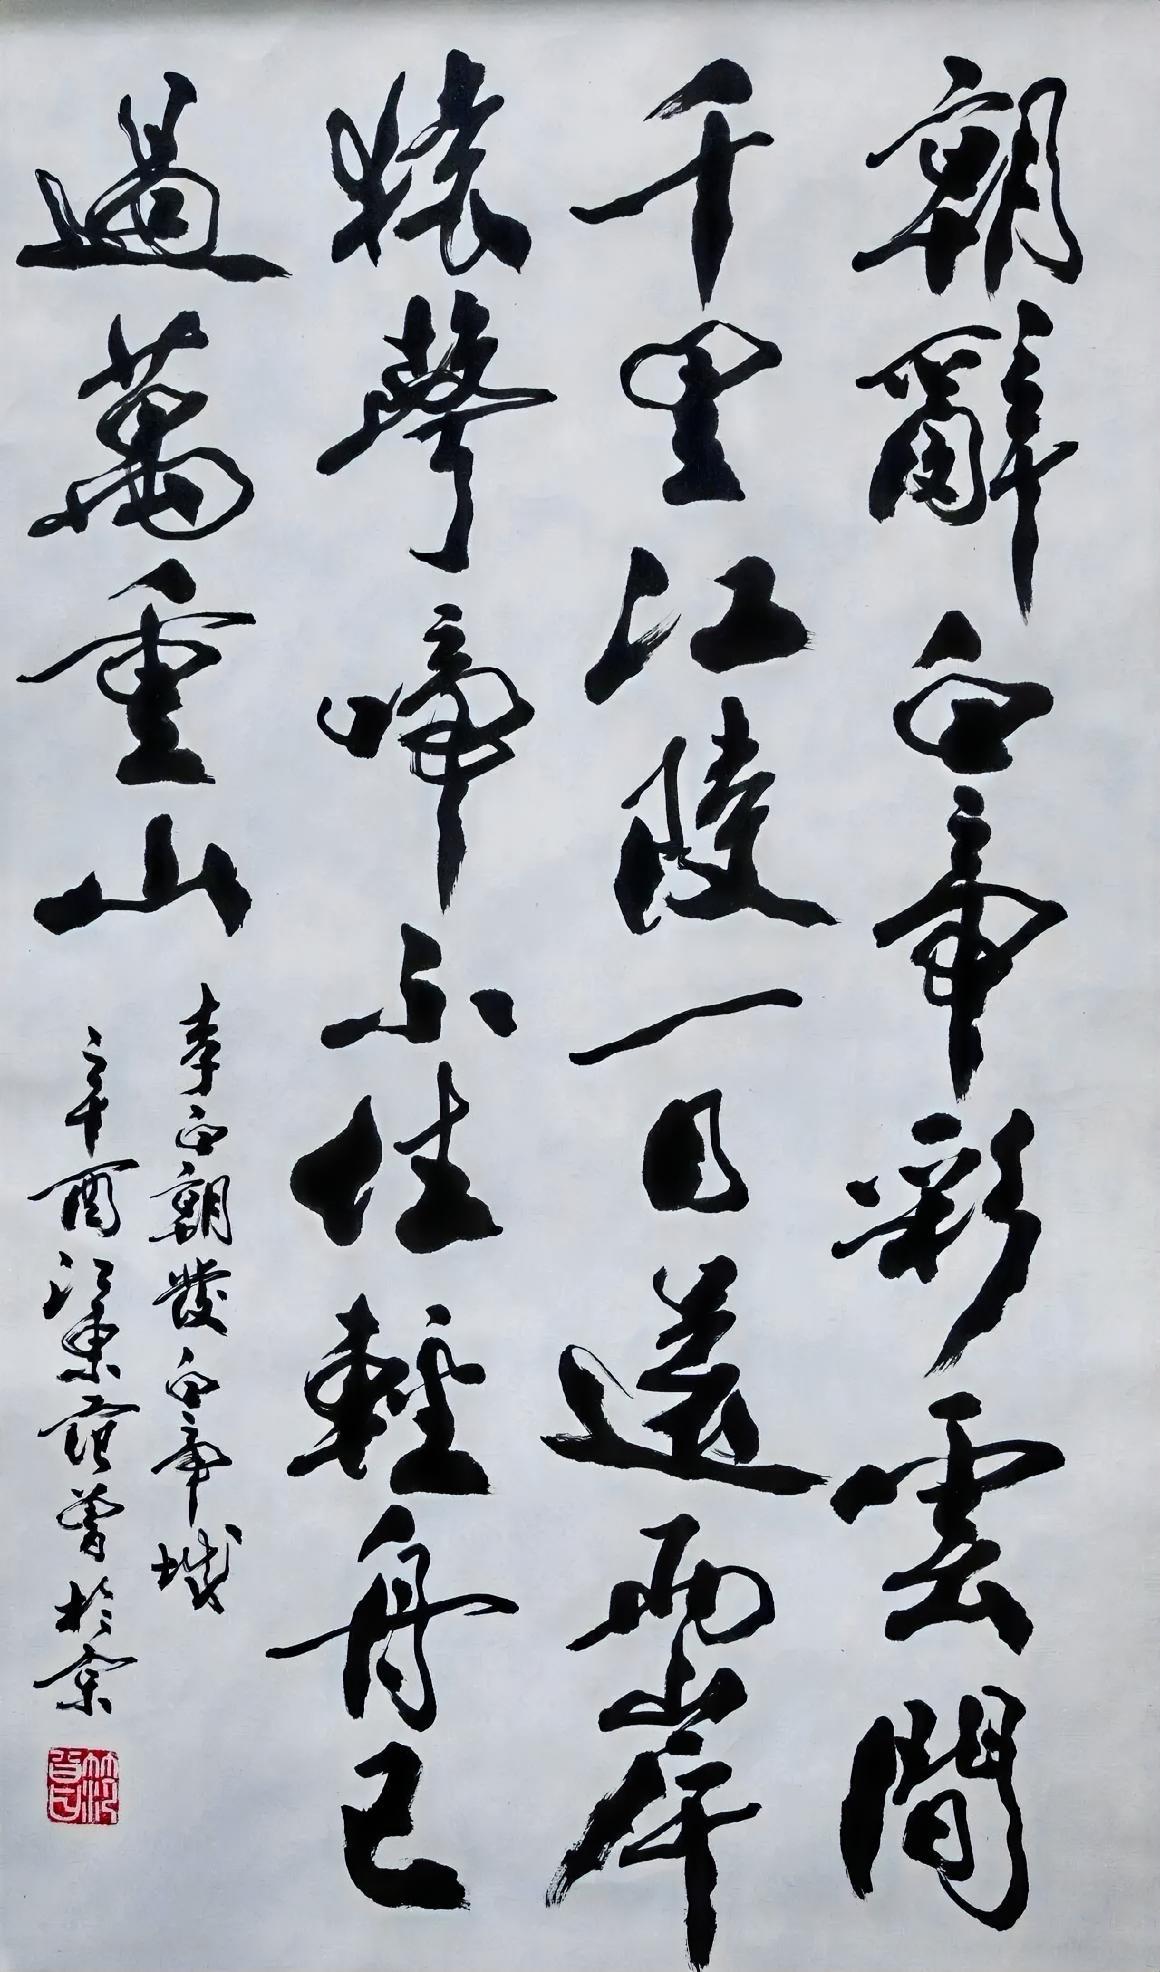 朝辭白帝彩雲間
千里江陵一日還兩岸
猿聲啼不住輕舟已
過萬重山
李白朝發白帝城
辛酉江東范曾於京
范曾